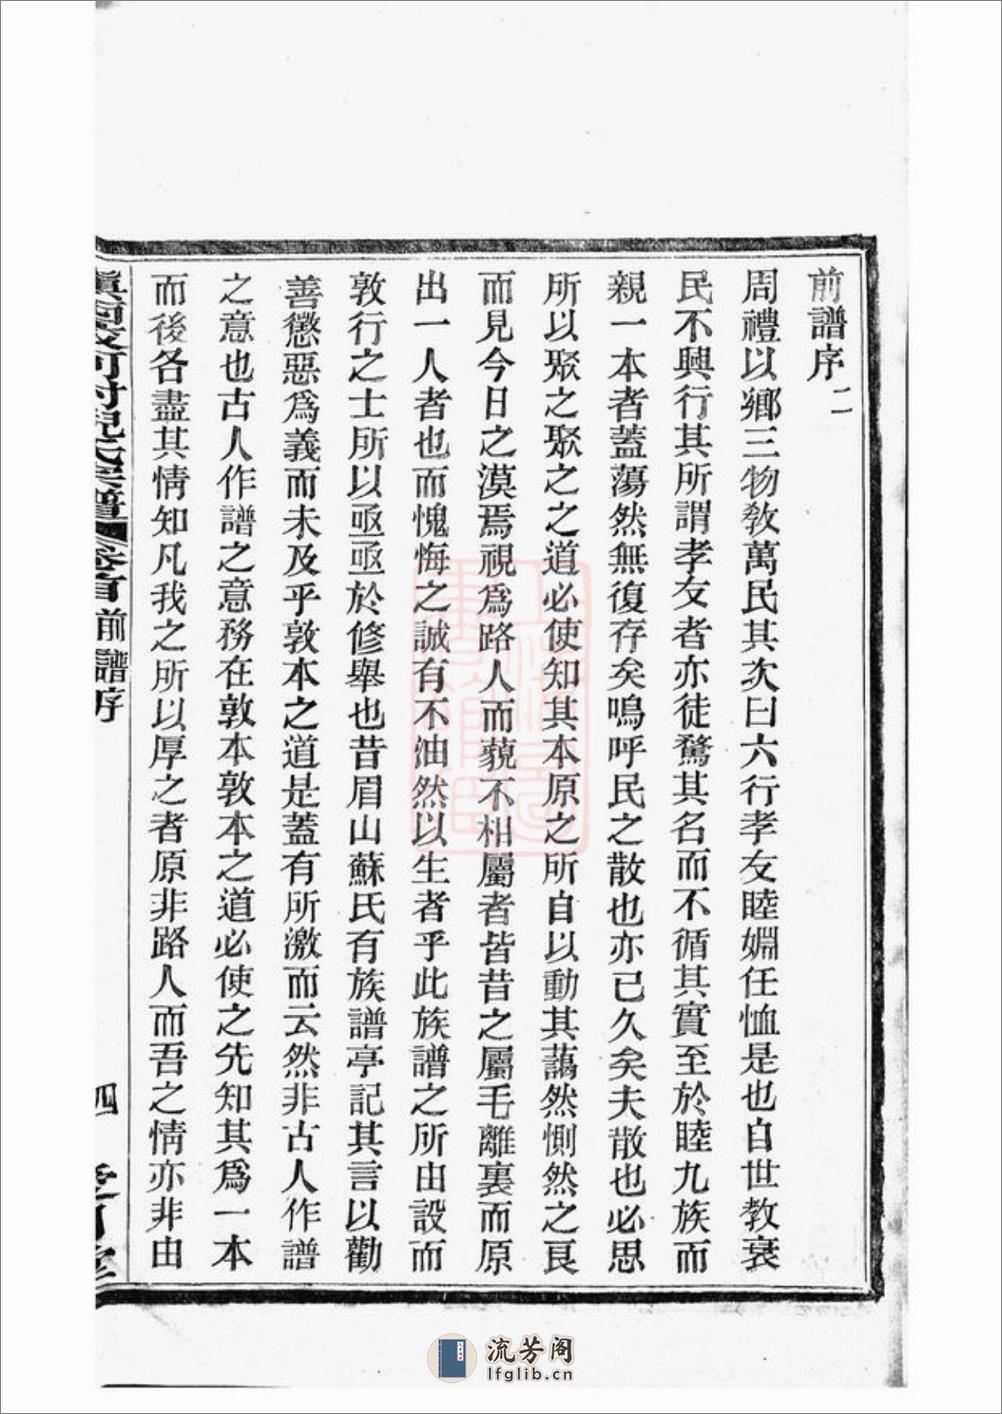 前譜序二
周禮以鄉三物教萬民其次曰六行孝友睦婣任恤是也自世教衰
民不興行其所謂孝友者亦徒騖其名而不循其實至於睦九族而
親一本者蓋蕩然無復存矣嗚呼民之散也亦已久矣夫散也必思
所以聚之聚之之道必使知其本原之所自以動其藹然惻然之良
而見今日之漠焉視為路人而藐不相屬者皆昔之屬毛離裏而原
出一人者也而愧悔之誠有不油然以生者乎此族譜之所由設而
敦行之士所以亟亟於修舉也昔眉山蘇氏有族譜亭記其言以勸
善懲惡為義而未及乎敦本之道是蓋有所激而云然非古人作譜
之意也古人作譜之意務在敦本敦本之道必使之先知其為一本
而後各盡其情知凡我之所以厚之者原非路人而吾之情亦非由
村 氏宗譜 卷首 前譜序
四
流芳阁
lfglib.cn